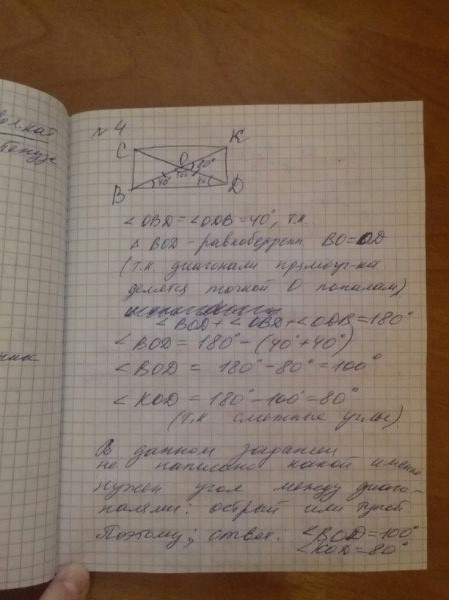 № 4
C K
O 80°
B 40° 100° 40° D
∠OBD = ∠ODB = 40°, т.к
△ BOD - равнобедренн. BO = OD
(т.к диагонали прямоуг-ка
делятся точкой O пополам)
∠BOD + ∠OBD + ∠ODB = 180°
∠BOD = 180° - (40° + 40°)
∠BOD = 180° - 80° = 100°
∠KOD = 180° - 100° = 80°
(т.к смежные углы)
В данном задании
не написано какой именно
нужен угол между диаго-
налями: острый или тупой.
Поэтому, ответ: ∠BOD = 100°
∠KOD = 80°